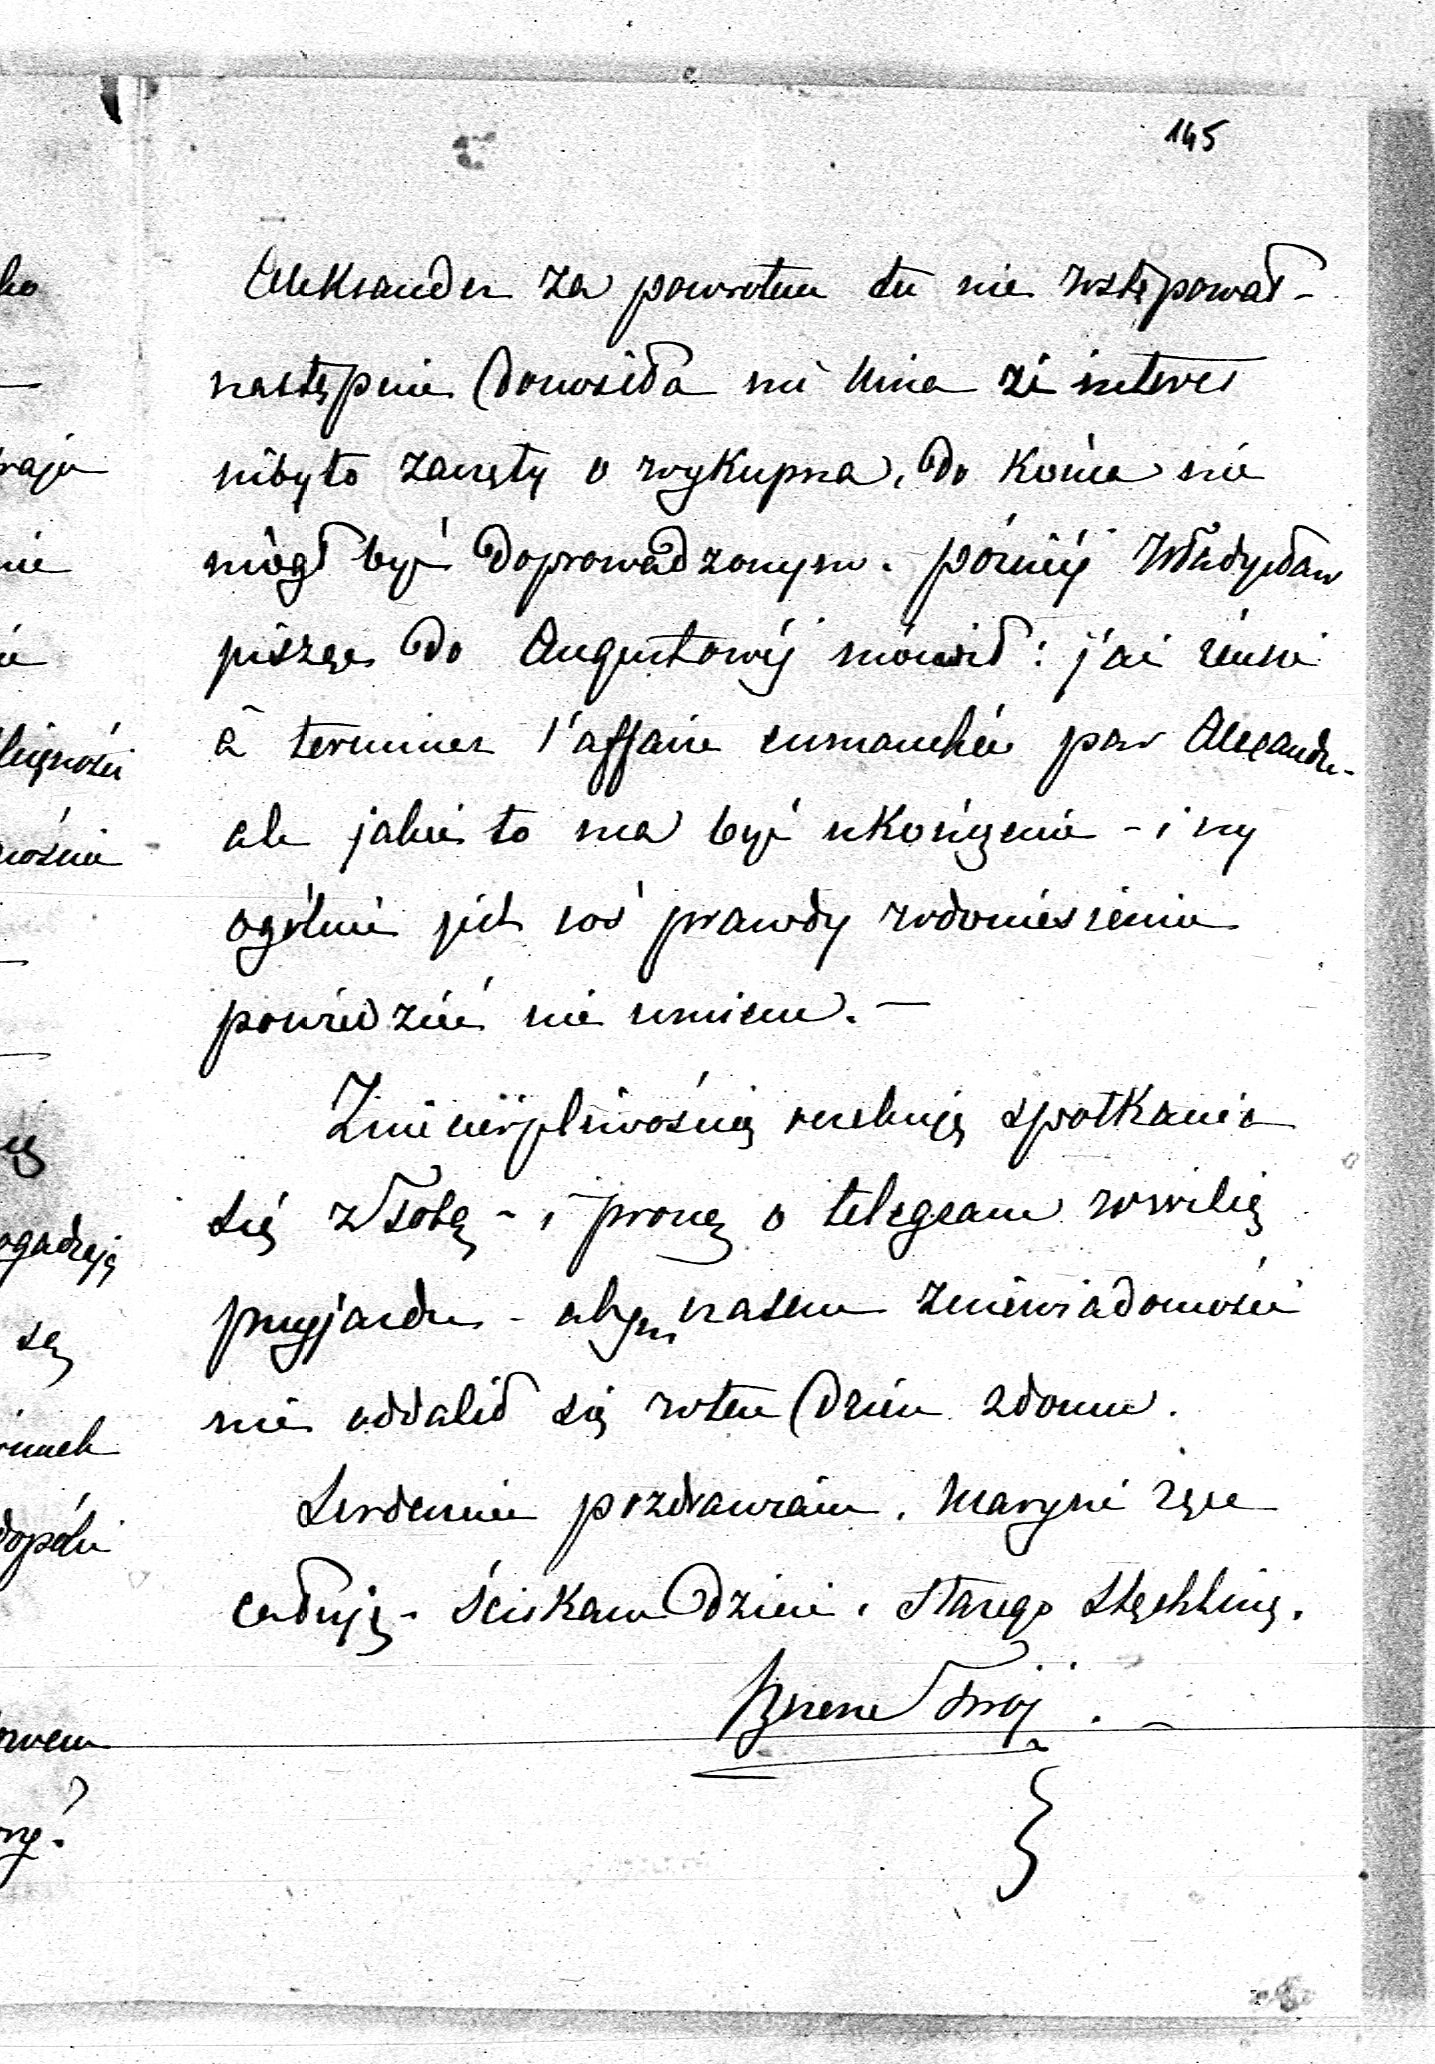 145
Aleksander za powrotem tu nie wstępował -
następnie donosiła mi Nina że interes
niby to zaczęty o wykupna, do końca nie
mógł być doprowadzonym. później Władysław
pisząc do Augustowéj mówił: j'ai réussi
à terminer l'affaire emmanchée par Alexandre -
ale jakie to ma być ukończenie - i czy
ogólnie jest coś prawdy w doniesieniu
powiedzieć nie umiem. —
Z niecierpliwością oczekuję spotkania
się z Tobą - i proszę o telegram w wilię
przyjazdu - abym czasem z nieświadomości
nie oddalił się w ten dzień z domu.
Serdecznie pozdrawiam. Maryni ręce
całuję - ściskam dzieci i starego
szczerze Twój. -